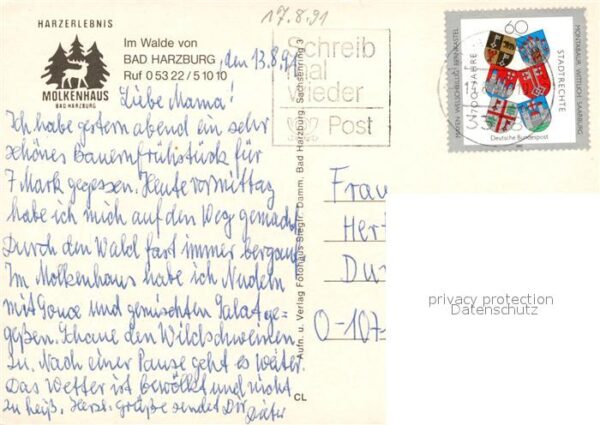 HARZERLEBNIS
MOLKENHAUS
BAD HARZBURG
Im Walde von
BAD HARZBURG
Ruf 0 53 22 / 5 10 10
17.8.91
, den 13.8.91
Liebe Mama!
Ich habe gestern abend ein sehr
schönes Bauernfrühstück für
7 Mark gegessen. Heute vormittag
habe ich mich auf den Weg gemacht
Durch den Wald fast immer bergauf.
Im Molkenhaus habe ich Nudeln
mit und gemischten Salat ge-
geßen. Schaue den Wildschweinen
zu. Nach einer Pause geht es weiter.
Das Wetter ist bewölkt und nicht
zu heiß. Herzl. Grüße sendet Dir
Dieter
Schreib
mal
wieder
Post
Aufn. u. Verlag Fotohaus Siegfr. Damm, Bad Harzburg, Sachsenring 3
CL
60
700 JAHRE
STADTRECHTE
MAYEN WELSCHBILLIG BERNKASTEL
MONTABAUR WITTLICH SAARBURG
Deutsche Bundespost
Frau
Her
Du
O-107
privacy protection
Datenschutz